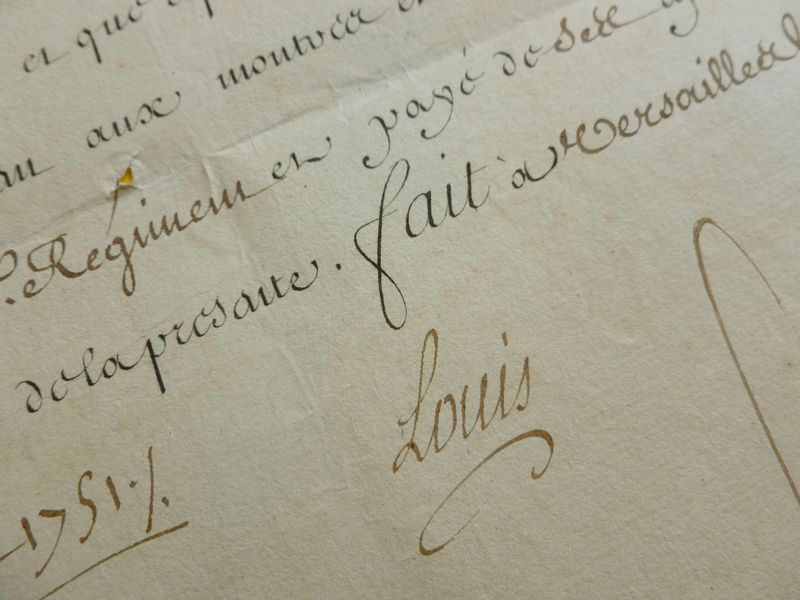 et que
aux montrer
Regiment et payé de ses
de la presante. fait à Versailles
1751./.
Louis